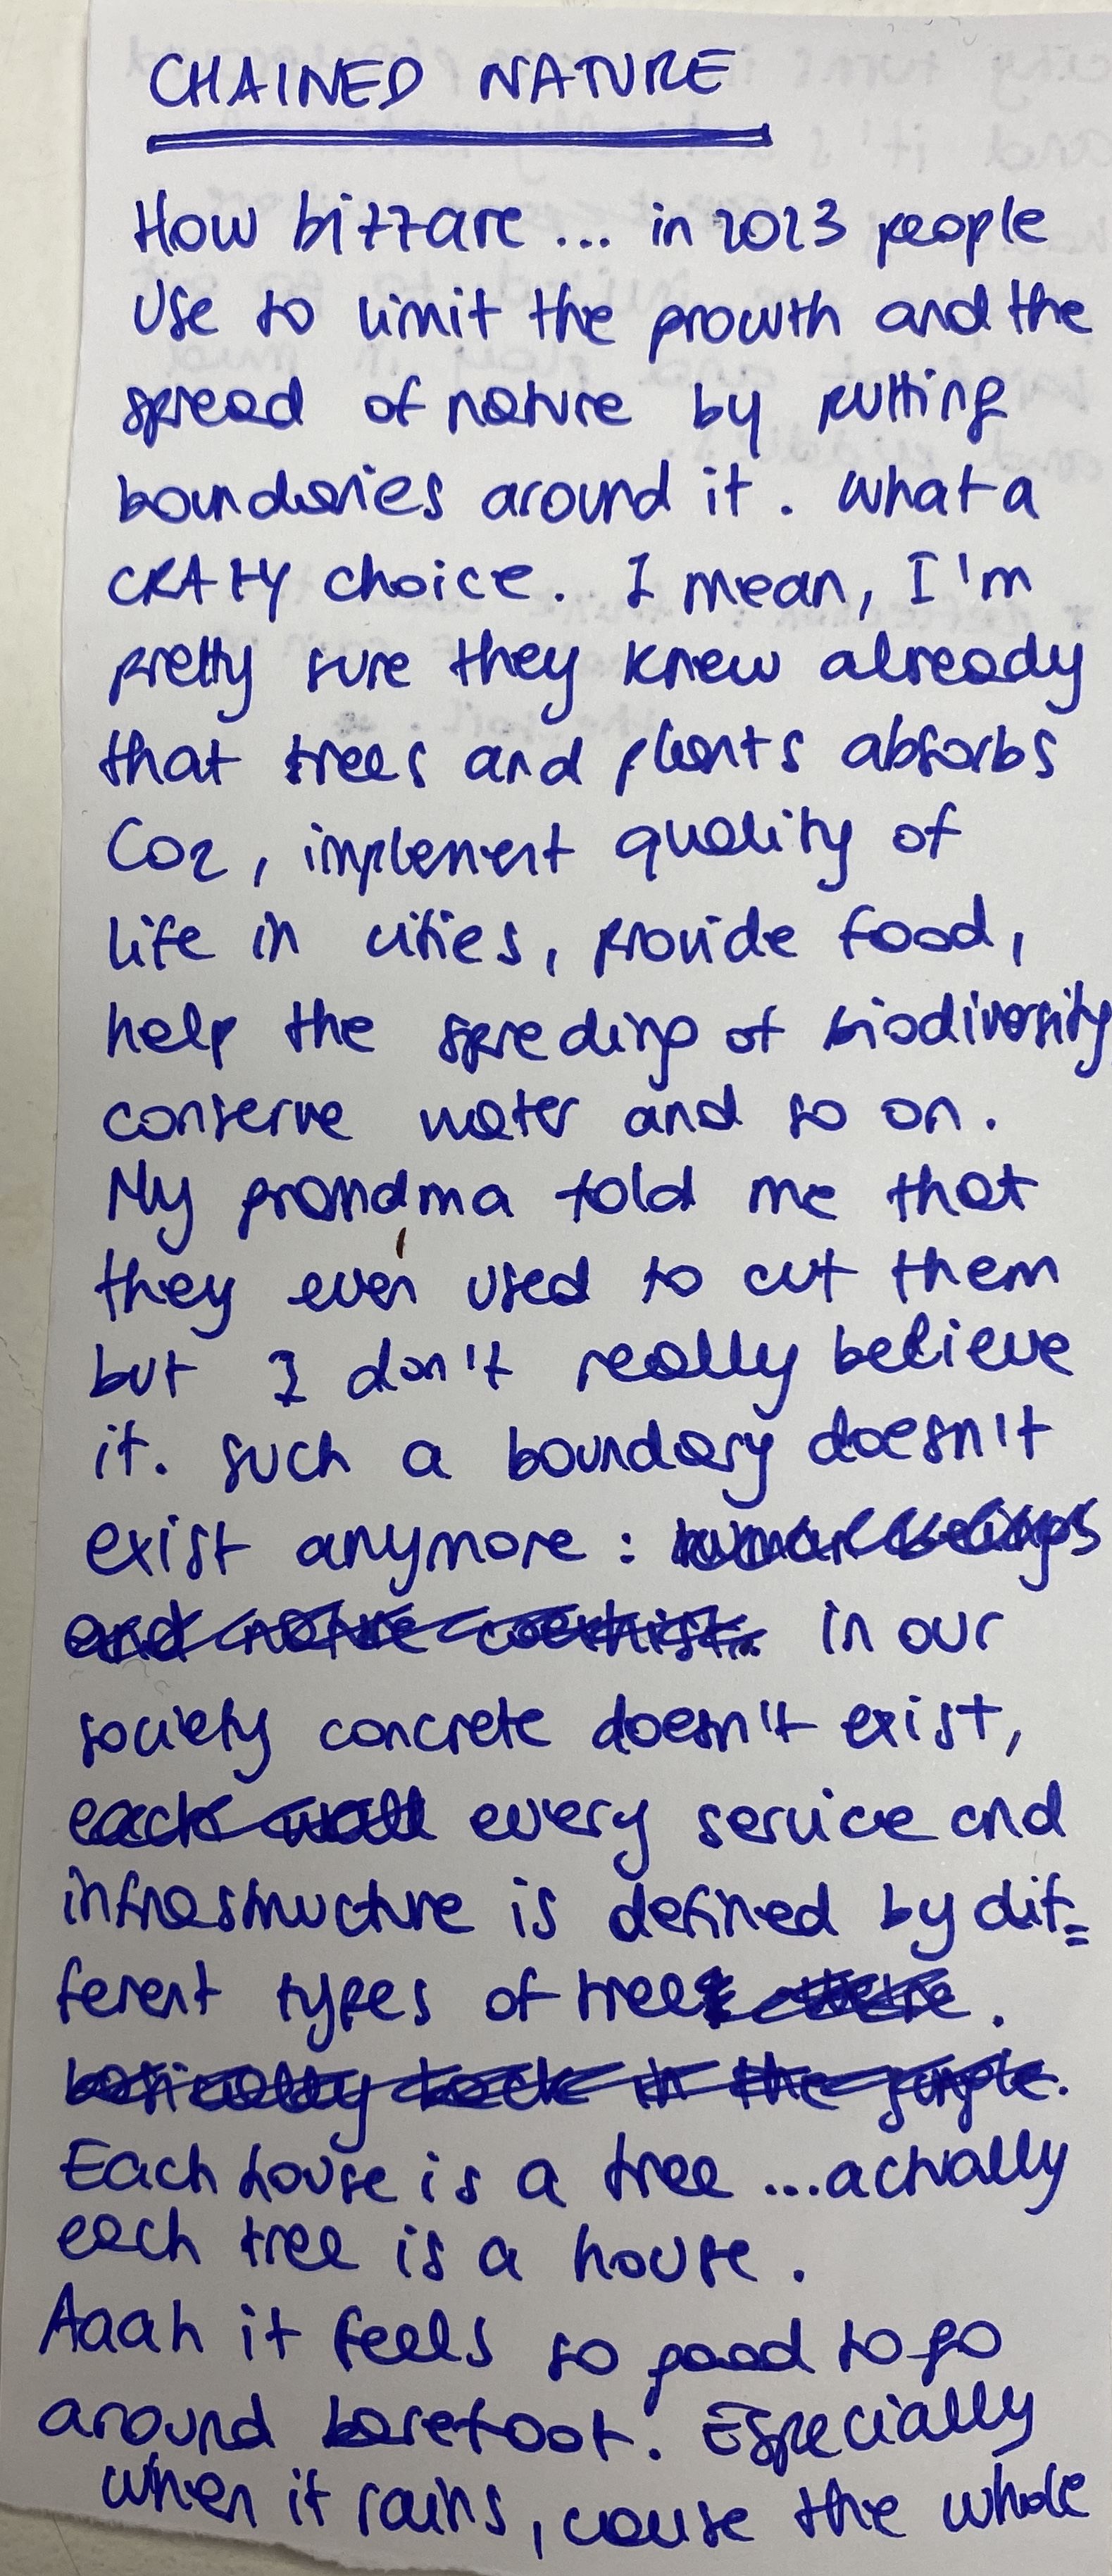 CHAINED NATURE
How bizzare... in 2023 people
use to limit the growth and the
spread of nature by putting
boundaries around it. What a
CRAZY choice. I mean, I'm
pretty sure they knew already
that trees and plants absorbs
CO2, implement quality of
life in cities, provide food,
help the spreding of biodiversity
conserve water and so on.
My grandma told me that
they even used to cut them
but I don't really believe
it. such a boundary doesn't
exist anymore: human beings
and nature coexhist... in our
society concrete doesn't exist,
each wall every service and
infrastructure is defined by dif=
ferent types of trees where.
basically back in the jungle.
Each house is a tree ...actually
each tree is a house.
Aaah it feels so good to go
around barefoot! Especially
when it rains, cause the whole